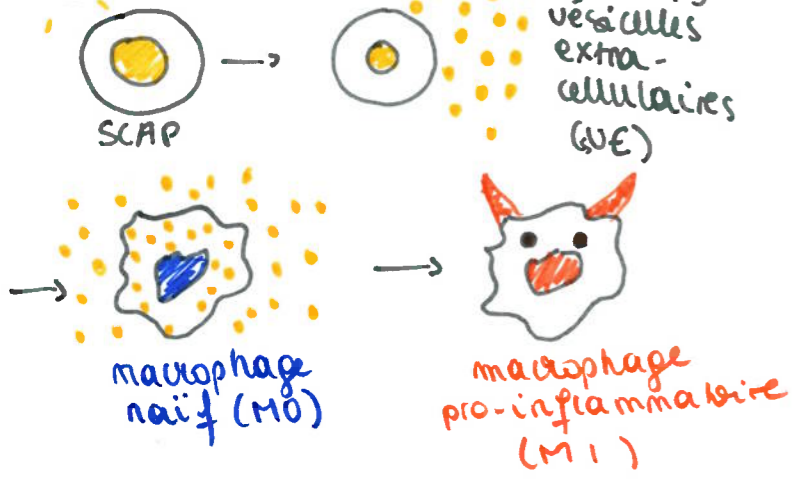 vésicules
extra-
cellulaires
(sVE)
SCAP
macrophage
naïf (M0)
macrophage
pro-inflammatoire
(M1)